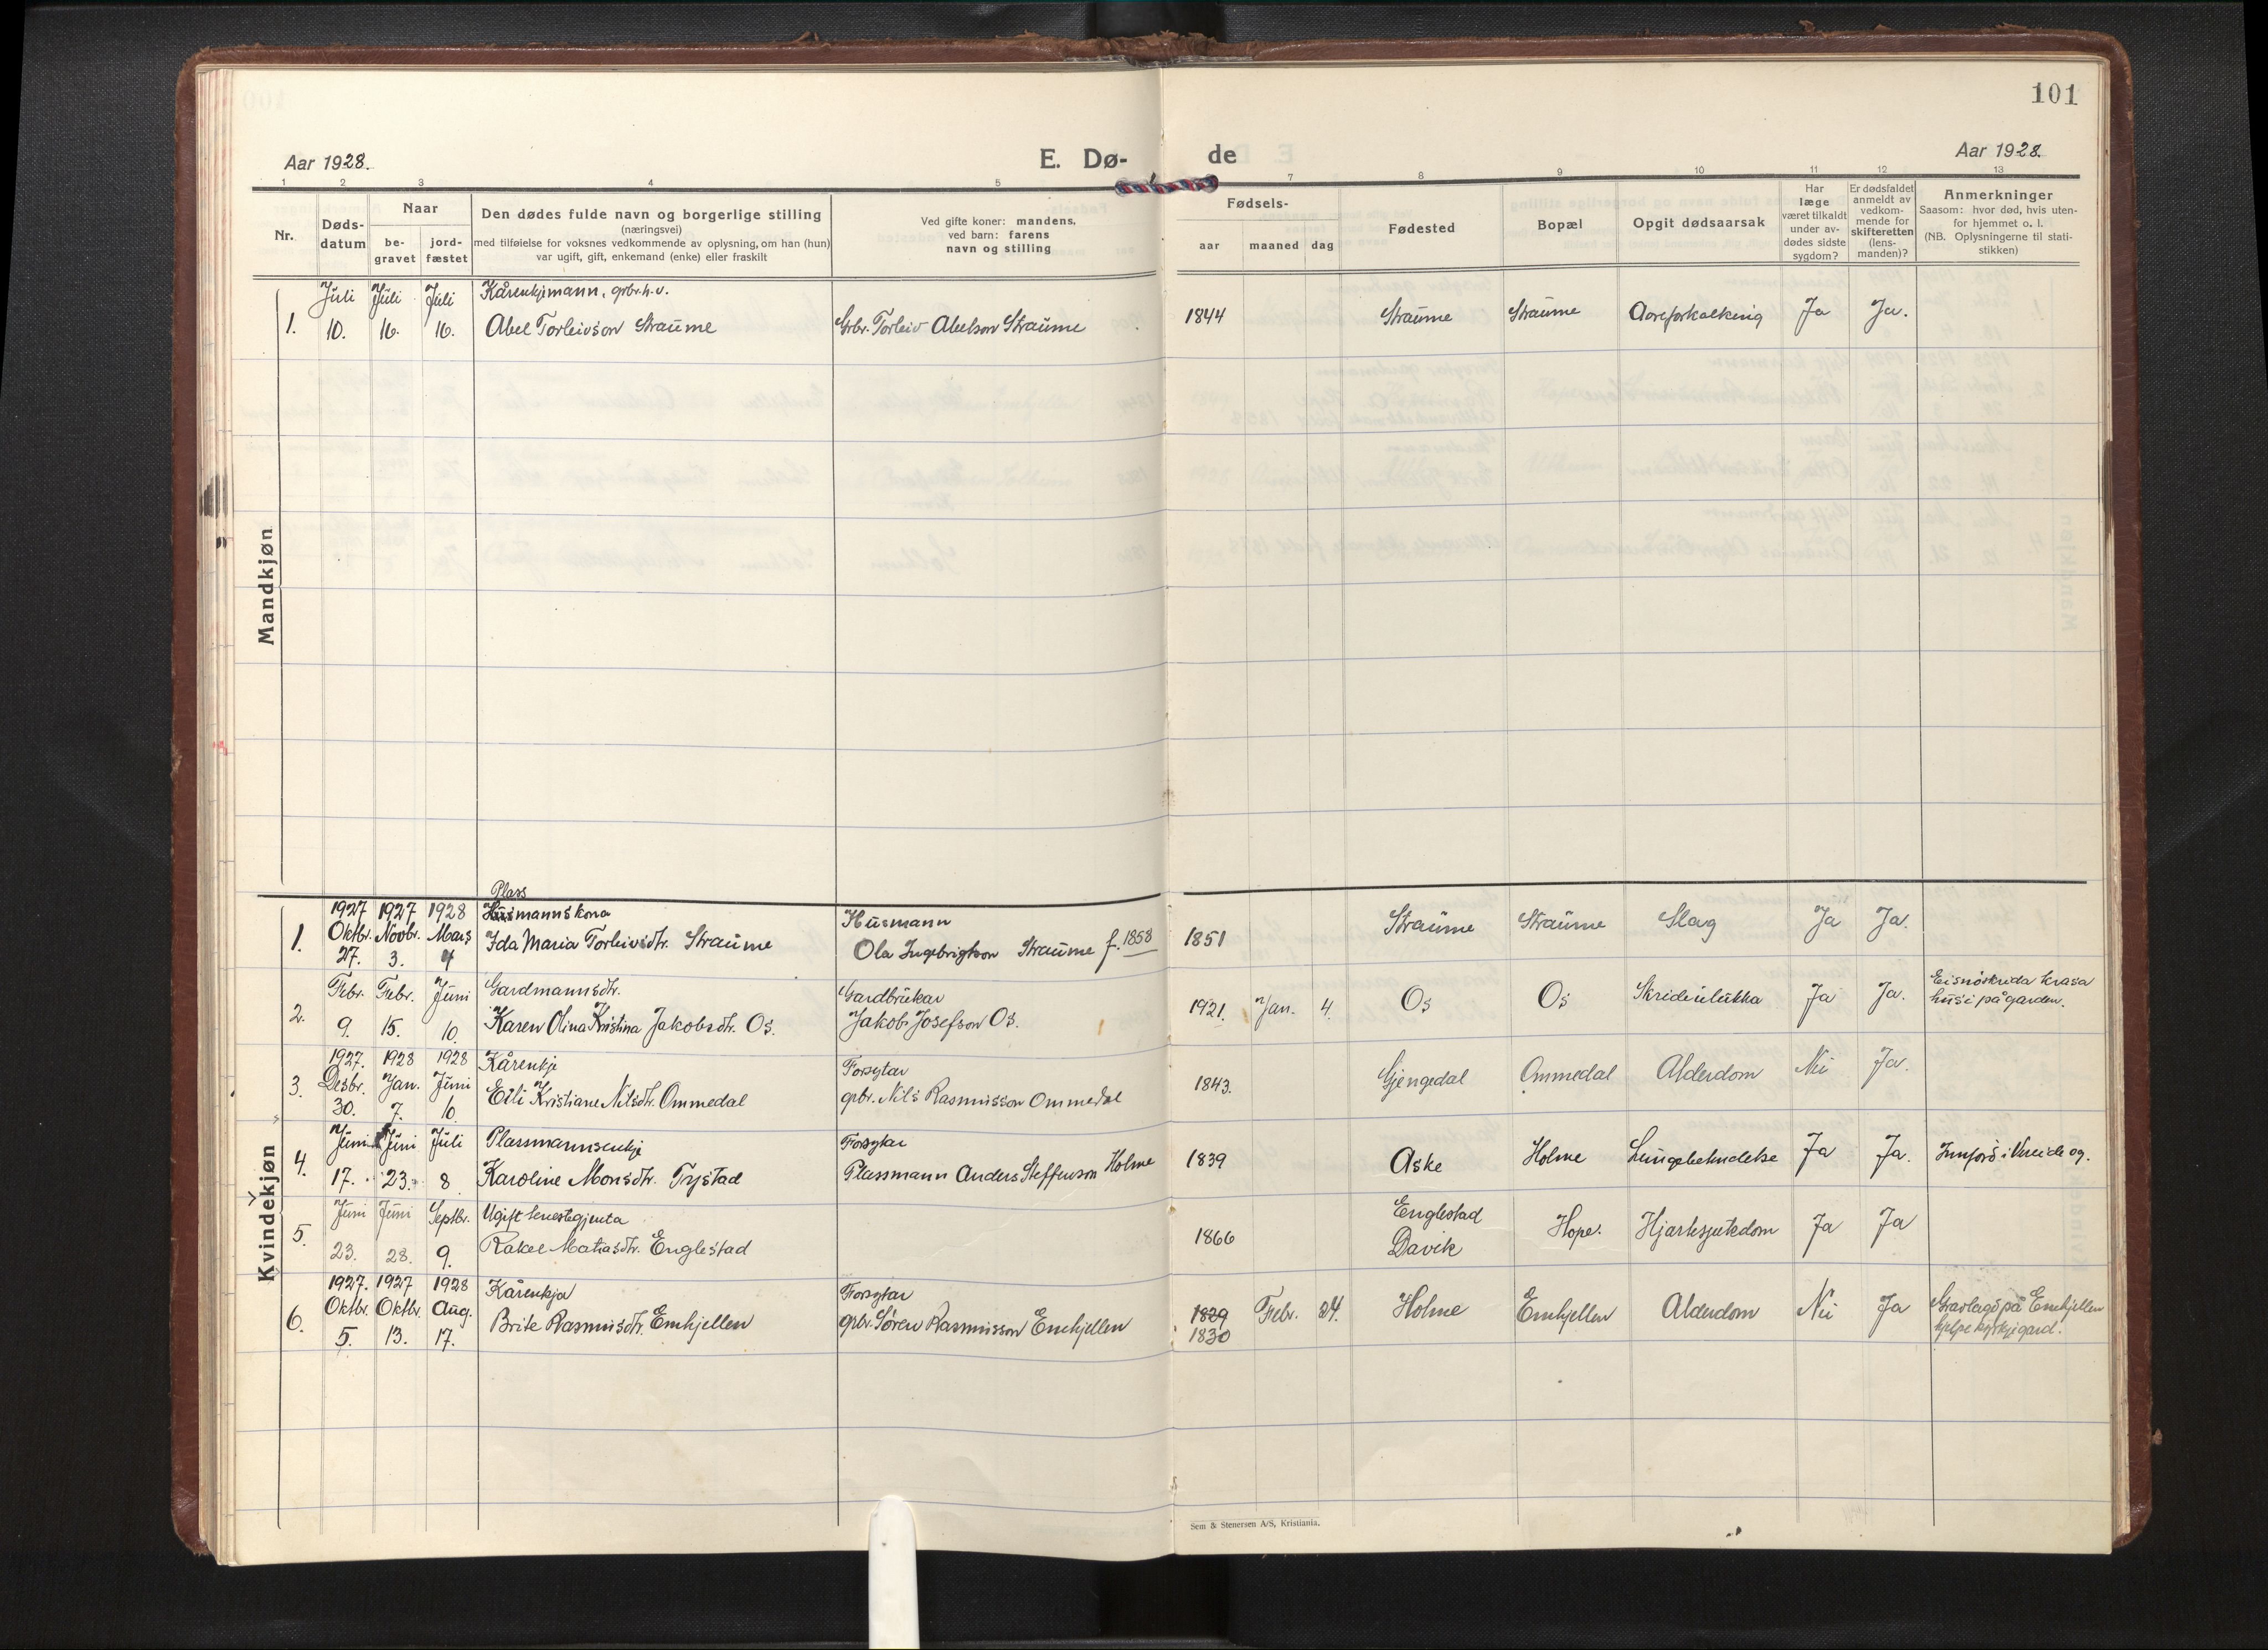 101
Aar 1928.
E. Dø-
de
Aar 1928.
1 2 3 4 5 7 8 9 10 11 12 13
Nr.
Døds-
datum
Naar
be-
gravet
jord-
fæstet
Den dødes fulde navn og borgerlige stilling
(næringsvei)
med tilføielse for voksnes vedkommende av oplysning, om han (hun)
var ugift, gift, enkemand (enke) eller fraskilt
Ved gifte koner: mandens,
ved barn: farens
navn og stilling
Fødsels-
aar maaned dag
Fødested
Bopæl
Opgit dødsaarsak
Har
læge
været tilkaldt
under av-
dødes sidste
sygdom?
Er dødsfaldet
anmeldt av
vedkom-
mende for
skifteretten
(lens-
manden)?
Anmerkninger
Saasom: hvor død, hvis uten-
for hjemmet o. l.
(NB. Oplysningerne til stati-
stikken)
Mandkjøn
Juli Juli Juli Kårenkjemann, grbr.h.v.
1. 10. 16. 16. Abel Torleivson Straume Grbr. Torleiv Abelson Straume 1844 Straume Straume Aoreforkalkning Ja Ja.
Kvindekjøn
Plass
1927 1927 1928 Husmannskona Husmann
1. Oktbr. Novbr. Mars Ida Maria Torleivsdtr. Straume Ola Ingebrigtson Straume f. 1858 1851 Straume Straume Slag Ja Ja.
27. 3. 4
Febr. Febr. Juni Gardmannsdtr. Gardbrukar Eisnøskrida krasa
2. 9. 15. 10. Karen Olina Kristina Jakobsdtr. Os. Jakob Josefson Os. 1921. Jan. 4. Os Os Skrideulukka Ja Ja. husi på garden.
1927. 1928 1928 Kårenkje Forsytar
3. Desbr. Jan. Juni Eili Kristiane Nilsdtr. Ommedal grbr. Nils Rasmusson Ommedal 1843. Gjengedal Ommedal Alderdom Nei Ja.
30. 7. 10
Juni Juni Juli Plassmannsenkje Forsytar
4. 17. 23. 8 Karoline Monsdtr. Trystad Plassmann Anders Steffenson Holme 1839 Aske Holme Lungebetndelse Ja Ja. Innførd i Vereide og.
Juni Juni Septbr. Ugift tenestegjenta Englestad
5. 23. 28. 9. Rakel Matiasdtr. Englestad 1866 Davik Hope. Hjartesjukdom Ja Ja
1927. 1927 1928 Kårenkja Forsytar
6. Oktbr. Oktbr. Aug. Brite Rasmusdtr. Emhjellen grbr. Søren Rasmusson Emhjellen 1829 Febr. 24. Holme Emhjellen Alderdom Nei Ja Gravlagd på Emhjellen
5. 13. 17. 1830 hjelpekyrkjegard.
Sem & Stenersen A/S, Kristiania.